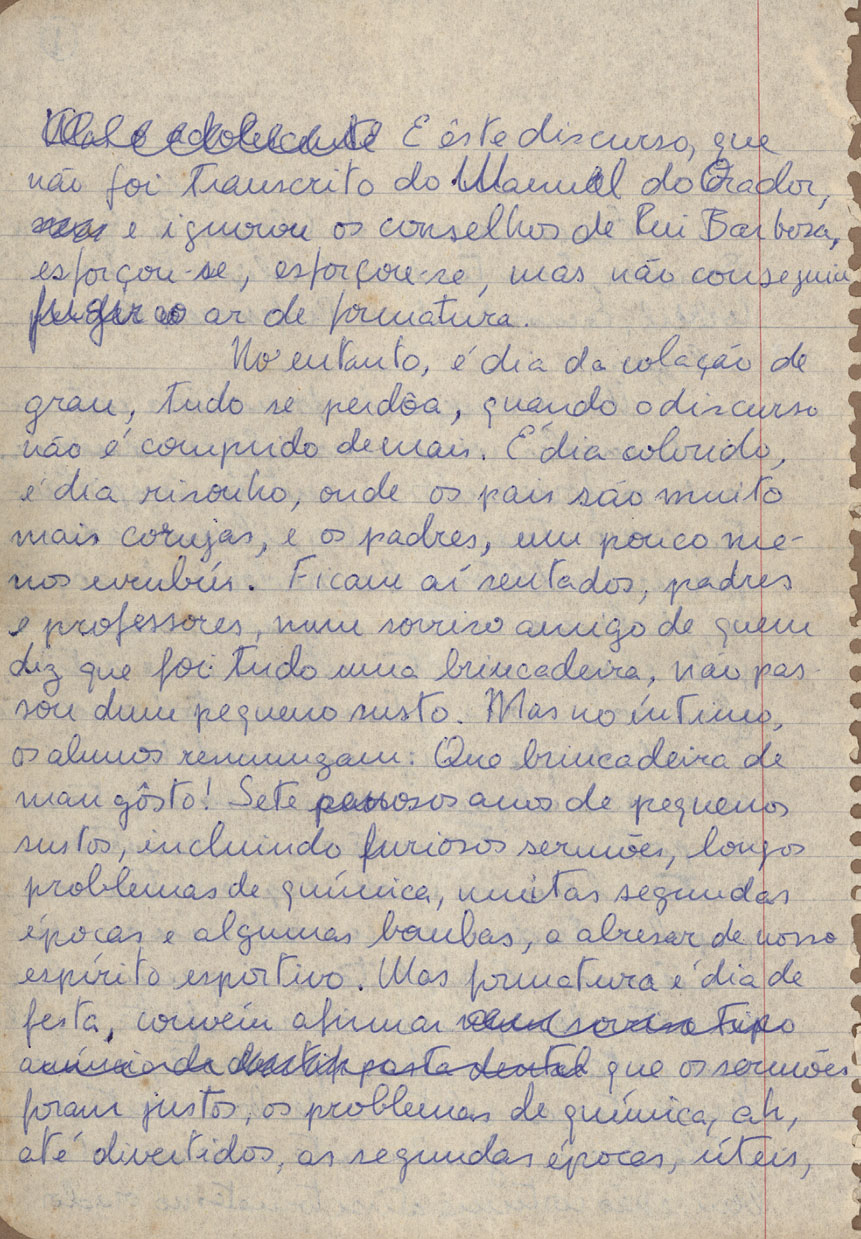 E êste discurso, que
não foi transcrito do Manual do Orador,
e ignorou os conselhos de Rui Barbosa,
esforçou-se, esforçou-se, mas não conseguiu
fugir ao ar de formatura.
No entanto, é dia da colação de
grau, tudo se perdôa, quando o discurso
não é comprido demais. É dia colorido,
é dia risonho, onde os pais são muito
mais corujas, e os padres, um pouco me-
nos urubús. Ficam aí sentados, padres
e professores, num sorriso amigo de quem
diz que foi tudo uma brincadeira, não pas-
sou dum pequeno susto. Mas no íntimo,
os alunos resmungam: Que brincadeira de
mau gôsto! Sete anos de pequenos
sustos, incluindo furiosos sermões, longos
problemas de química, muitas segundas
épocas e algumas bombas, a abusar de nosso
espírito esportivo. Mas formatura é dia de
festa, convém afirmar num sorriso tipo
anúncio de pasta dental que os sermões
foram justos, os problemas de química, ah,
até divertidos, as segundas épocas, úteis,